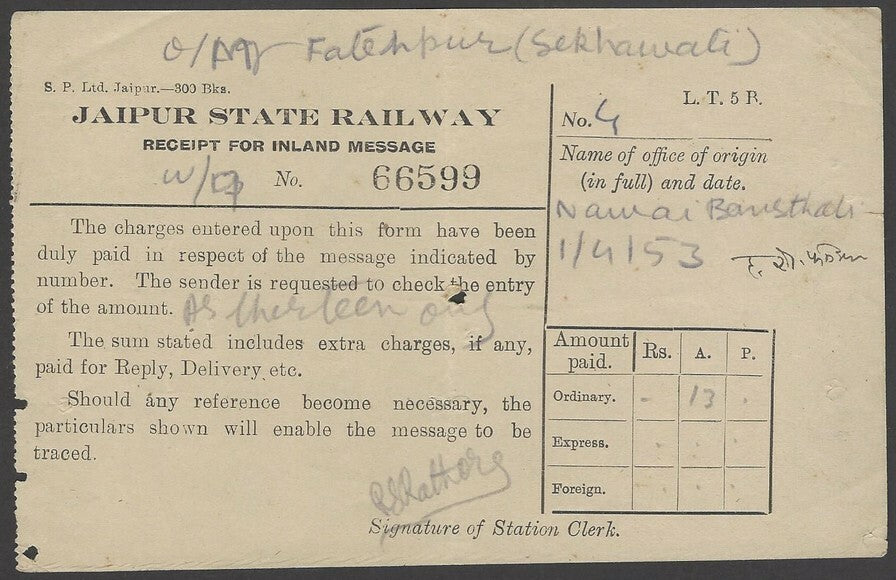 Fatehpur (Sekhawati)
S. P. Ltd. Jaipur.—300 Bks.
JAIPUR STATE RAILWAY
RECEIPT FOR INLAND MESSAGE
No. 66599
The charges entered upon this form have been
duly paid in respect of the message indicated by
number. The sender is requested to check the entry
of the amount. As therteen only
The sum stated includes extra charges, if any,
paid for Reply, Delivery etc.
Should any reference become necessary, the
particulars shown will enable the message to be
traced.
Signature of Station Clerk.
L. T. 5 R.
No. 4
Name of office of origin
(in full) and date.
Nawai Bansthali
1/4/53
Amount paid. Rs. A. P.
Ordinary. - 13 .
Express. . . .
Foreign. . . .